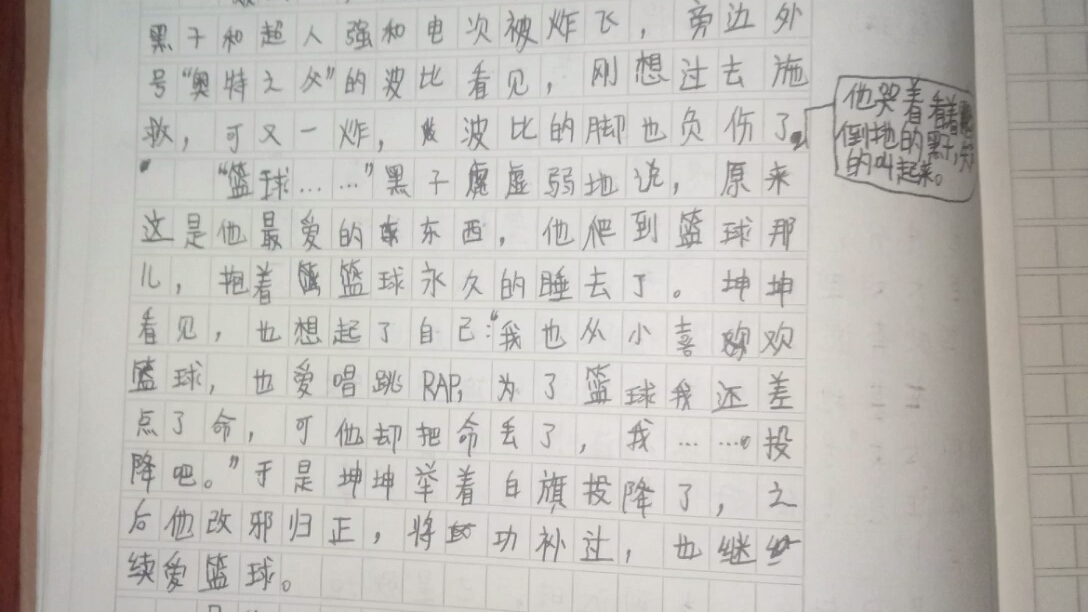 黑子和超人强和电次被炸飞，旁边外
号“奥特之父”的波比看见，刚想过去施
救，可又一炸，波比的脚也负伤了。
他哭着看着
倒地的黑子，
的叫起来。
“篮球……”黑子虚弱地说，原来
这是他最爱的东西，他爬到篮球那
儿，抱着篮球永久的睡去了。坤坤
看见，也想起了自己：“我也从小喜欢
篮球，也爱唱跳RAP，为了篮球我还差
点了命，可他却把命丢了，我……。投
降吧。”于是坤坤举着白旗投降了，之
后他改邪归正，将功补过，也继
续爱篮球。